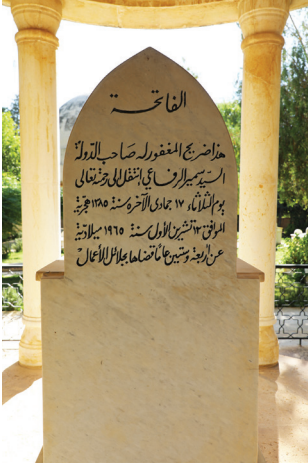 الفاتحة
هذا ضريح المغفور له صاحب الدولة
السيد سمير الرفاعي انتقل الى رحمة تعالى
يوم الثلاثاء ١٧ جمادى الآخرة سنة ١٣٨٥ هجرية
الموافق ١٢ تشرين الأول سنة ١٩٦٥ ميلادية
عن اربعة وستين عاما قضاها بجلائل الأعمال